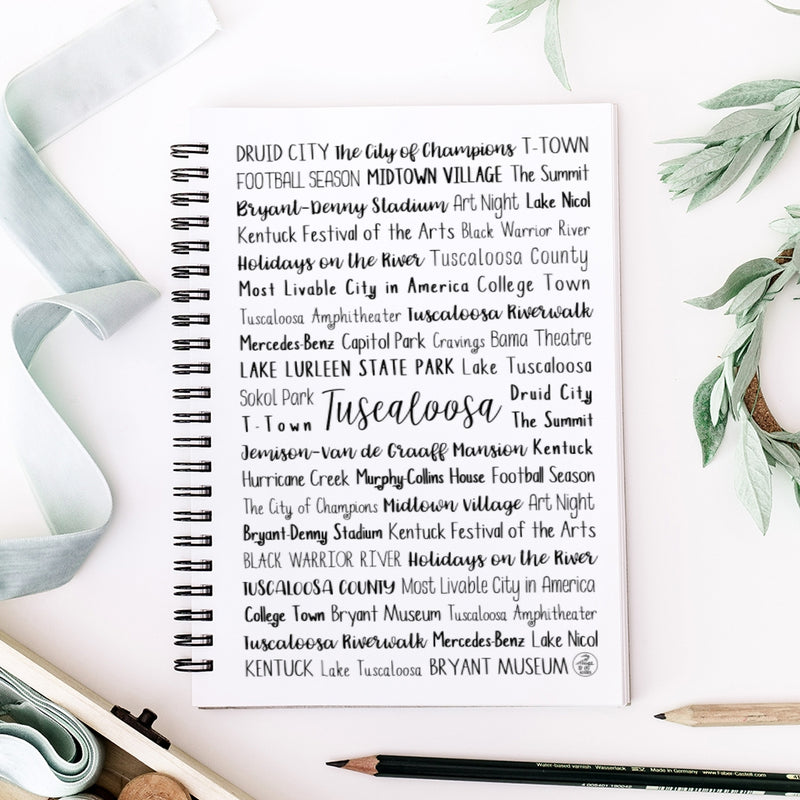 DRUID CITY The City of Champions T-TOWN
FOOTBALL SEASON MIDTOWN VILLAGE The Summit
Bryant-Denny Stadium Art Night Lake Nicol
Kentuck Festival of the Arts Black Warrior River
Holidays on the River Tuscaloosa County
Most Livable City in America College Town
Tuscaloosa Amphitheater Tuscaloosa Riverwalk
Mercedes-Benz Capitol Park Cravings Bama Theatre
LAKE LURLEEN STATE PARK Lake Tuscaloosa
Sokol Park Tuscaloosa Druid City
T-Town The Summit
Jemison-van de Graaff Mansion Kentuck
Hurricane Creek Murphy-Collins House Football Season
The City of Champions Midtown Village Art Night
Bryant-Denny Stadium Kentuck Festival of the Arts
BLACK WARRIOR RIVER Holidays on the River
TUSCALOOSA COUNTY Most Livable City in America
College Town Bryant Museum Tuscaloosa Amphitheater
Tuscaloosa Riverwalk Mercedes-Benz Lake Nicol
KENTUCK Lake Tuscaloosa BRYANT MUSEUM
Water-based varnish Wasserlack Made in Germany www.Faber-Castell.com